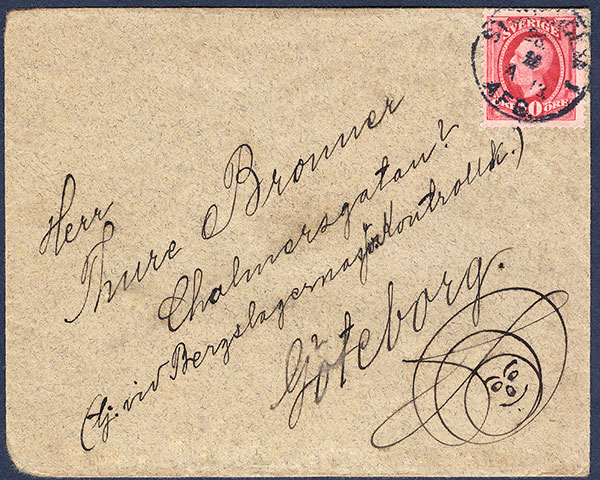 SVERIGE
10 ÖRE
AFG. 1
Herr
Thure Bronner
Chalmersgatan?
(tj: vid Bergslagernas Kontrollk.)
Göteborg.